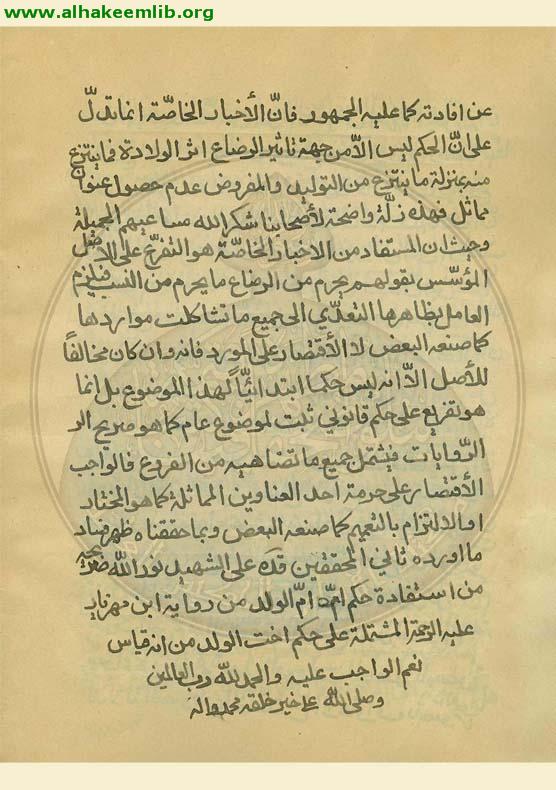 www.alhakeemlib.org
عن افادته كما عليه الجمهور فانّ الأخبار الخاصّة انما تدلّ
على انّ الحكم ليس الاّ من جهة تاثير الوضاع اثر الولادة فاينتزع
منه بمنزلة ما ينتزع من التوليد والمفروض عدم حصول عنوان
مماثل فهذه زلّة واضحة لأصحابنا شكر الله مساعيهم الجميلة
وحيث ان المستفاد من الاخبار الخاصّة هو التفريع على الأصل
المؤسّس بقولهم يحرم من الرضاع ما يحرم من النسب فيلزم
العامل بظاهرها التعدّي الى جميع ما تشاكلت مواردها
كما صنعه البعض لا الأقتصار على المورد فانه وان كان مخالفاً
للأصل الاّ انه ليس حكما ابتدائيّاً لهذا الموضوع بل انما
هو تفريع على حكم قانوني ثبت لموضوع عام كما هو صريح الر
الرّوايات فيشمل جميع ما تضاهيه من الفروع فالواجب
الأقتصار على حرمة احد العناوين المماثلة كما هو المختار
او الالتزام بالتعميم كما صنعه البعض وبما حققناه ظهر فساد
ما اورده ثاني المحققين قده على الشهيد نور الله ضريحه
من استفادة حكم امّ الولد من رواية ابن مهزيار
عليه الرحمة المشتملة على حكم اخت الولد من انه قياس
نعم الواجب عليه والحمد لله رب العالمين
وصلى الله على خير خلقه محمد واله